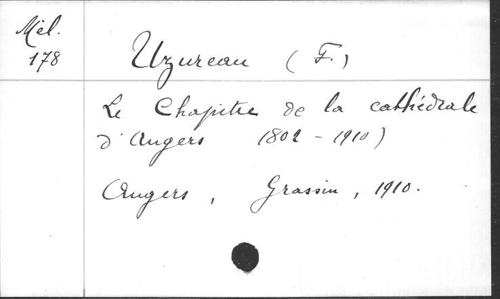 Mél.
178
Uzureau (F.)
Le Chapitre de la cathédrale
d'Angers (802 - 1910)
Angers, Grassin, 1910.